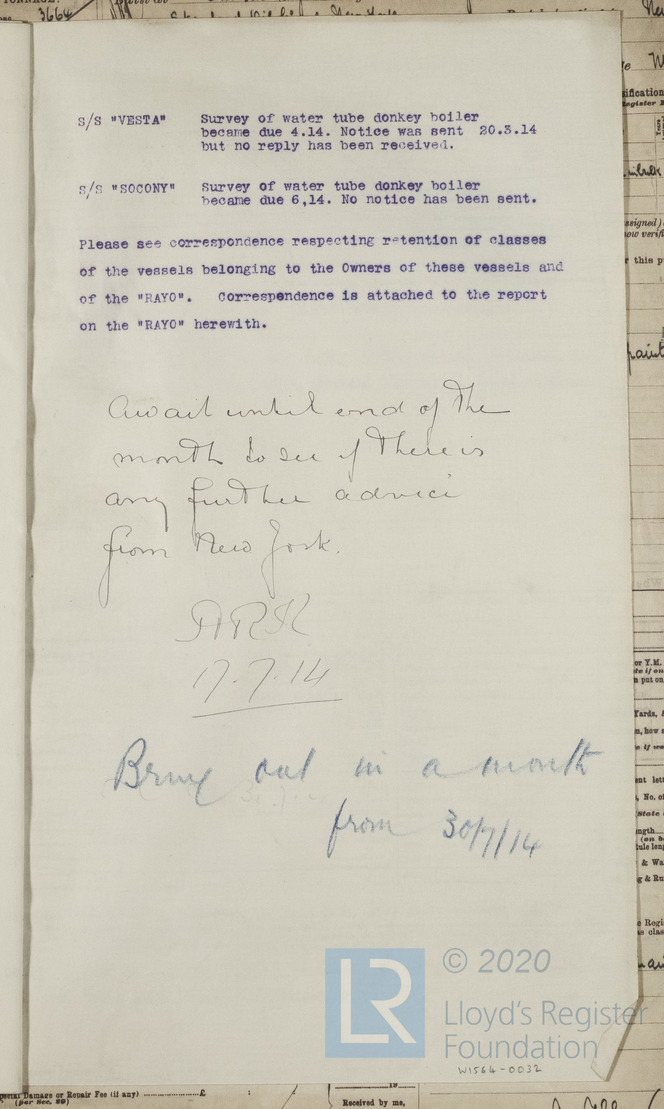 3664
S/S "VESTA" Survey of water tube donkey boiler
became due 4.14. Notice was sent 20.3.14
but no reply has been received.
S/S "SOCONY" Survey of water tube donkey boiler
became due 6,14. No notice has been sent.
Please see correspondence respecting retention of classes
of the vessels belonging to the Owners of these vessels and
of the "RAYO". Correspondence is attached to the report
on the "RAYO" herewith.
Await until end of the
month to see if there is
any further advice
from New York.
17.7.14
Bring out in a month
from 30/7/14
LR
© 2020
Lloyd's Register
Foundation
W1564-0032
Special Damage or Repair Fee (if any) £ :
(per Sec. 29)
19
Received by me,